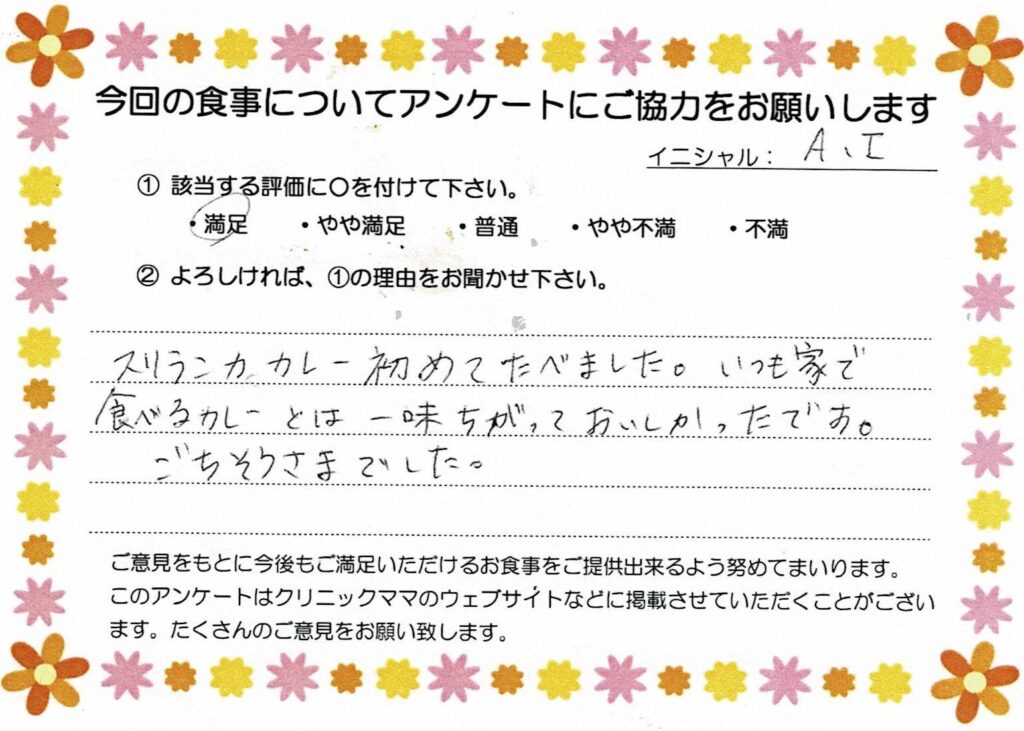 今回の食事についてアンケートにご協力をお願いします
イニシャル： A、I
① 該当する評価に〇を付けて下さい。
・満足 ・やや満足 ・普通 ・やや不満 ・不満
② よろしければ、①の理由をお聞かせ下さい。
スリランカカレー初めてたべました。いつも家で
食べるカレーとは一味ちがっておいしかったです。
ごちそうさまでした。
ご意見をもとに今後もご満足いただけるお食事をご提供出来るよう努めてまいります。
このアンケートはクリニックママのウェブサイトなどに掲載させていただくことがござい
ます。たくさんのご意見をお願い致します。